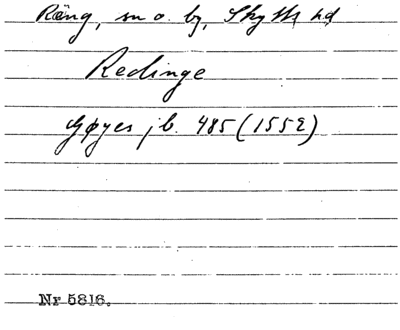 Räng, sn o. by, Skytts hd
Redinge
Gøyes jb. 485 (1552)
Nr 5816.